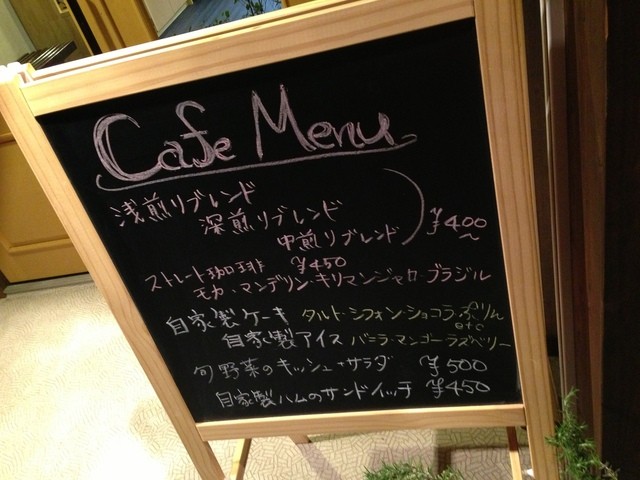 Cafe Menu
浅煎リブレンド
深煎リブレンド
中煎リブレンド ¥400〜
ストレート珈琲 ¥450
モカ・マンデリン・キリマンジャロ・ブラジル
自家製ケーキ タルト・シフォン・ショコラ・ぷりん etc
自家製アイス バニラ・マンゴー・ラズベリー
旬野菜のキッシュ+サラダ ¥500
自家製ハムのサンドイッチ ¥450